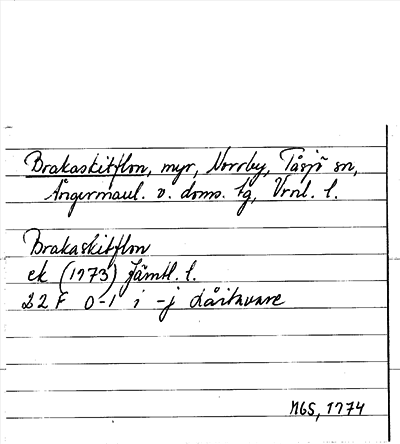 Brakaskitflon, myr, Norrby, Tåsjö sn,
Ångermanl. v. doms. tg, Vrnl. l.
Brakaskitflon
ek (1973) Jämtl. l.
22 F 0-1 i -j Dåritavare
NGS, 1974